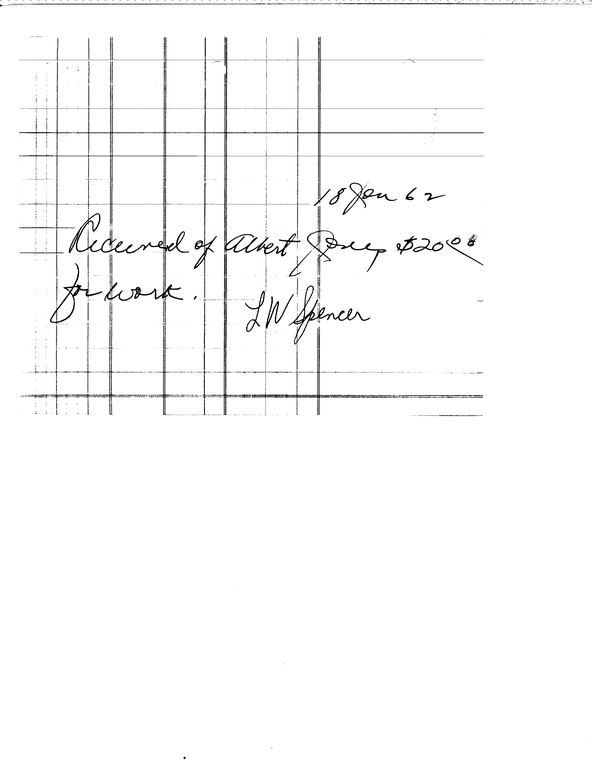 18 Jan 62
Received of Albert Jones $20.00
for work.
LW Spencer